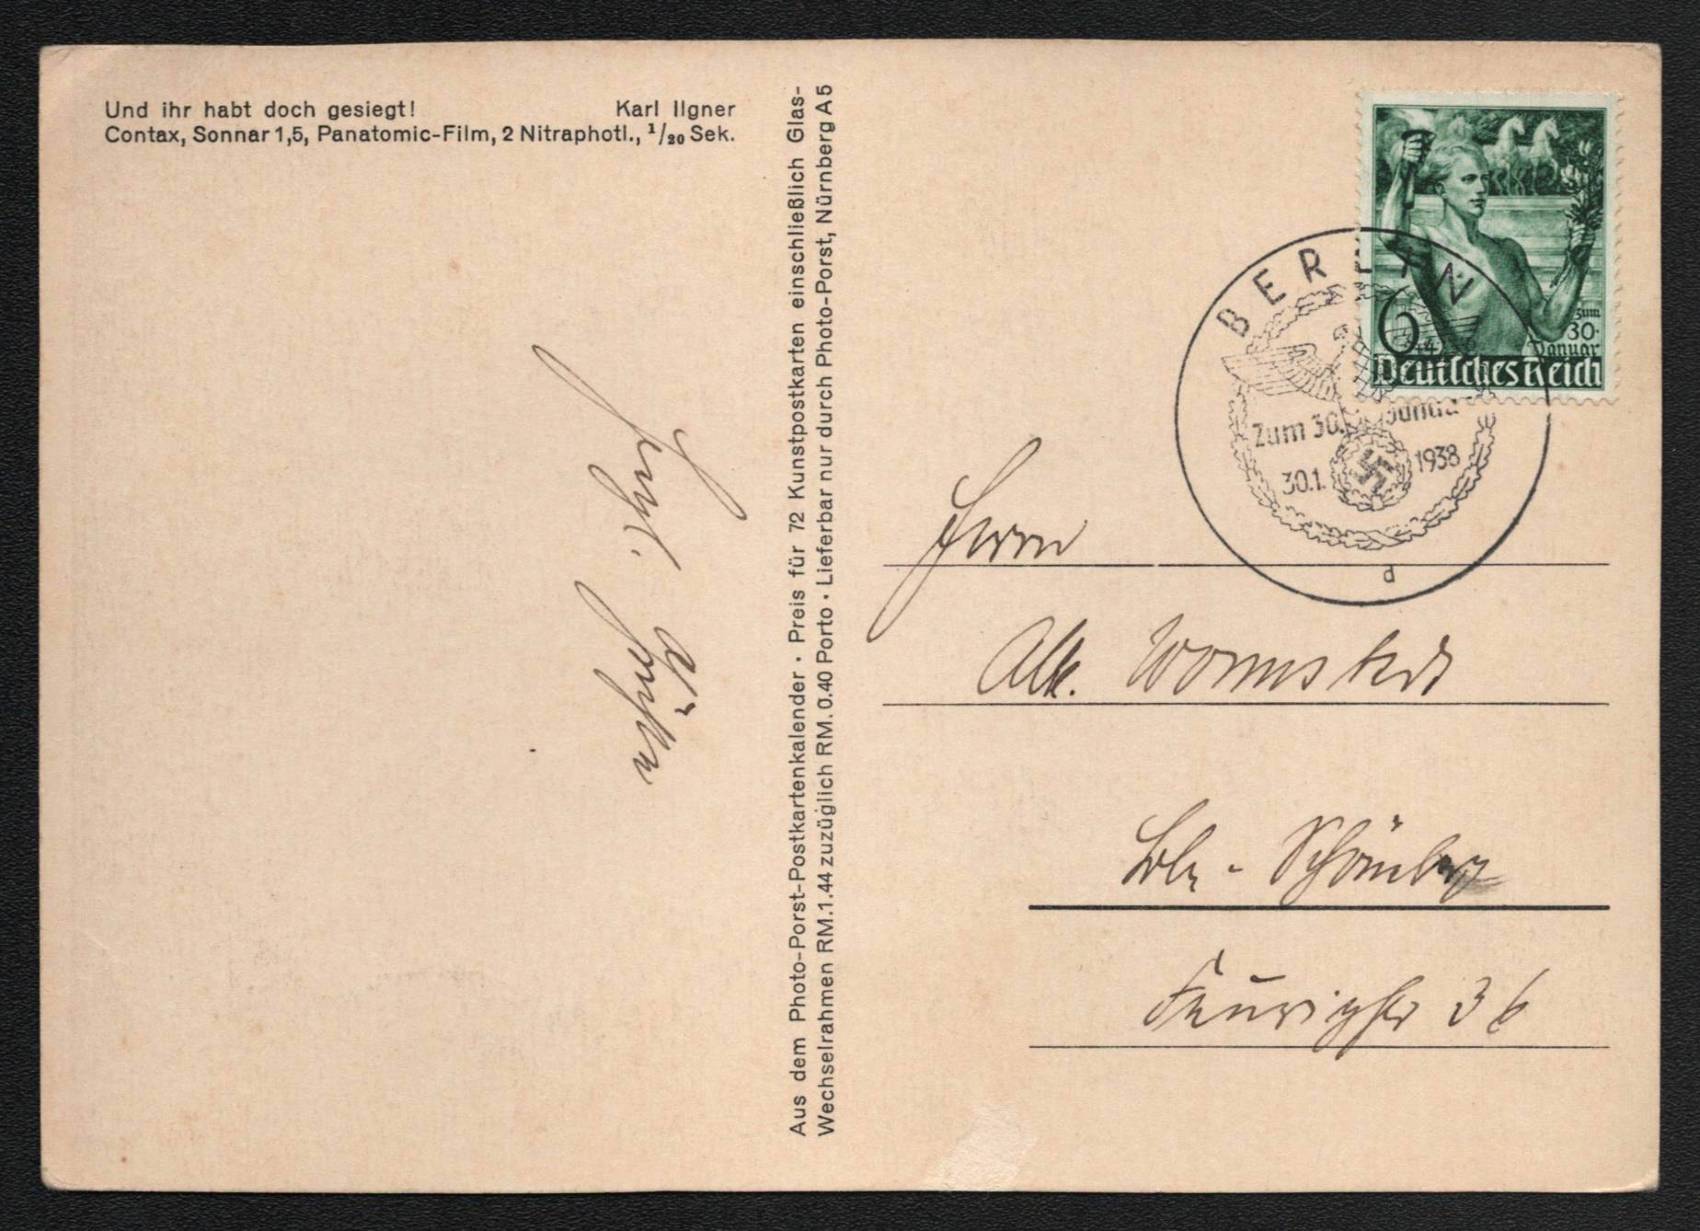 Und ihr habt doch gesiegt! Karl Ilgner
Contax, Sonnar 1,5, Panatomic-Film, 2 Nitraphotl., 1/20 Sek.
Aus dem Photo-Porst-Postkartenkalender · Preis für 72 Kunstpostkarten einschließlich Glas-
Wechselrahmen RM. 1.44 zuzüglich RM. 0.40 Porto · Lieferbar nur durch Photo-Porst, Nürnberg A 5
6+4
zum
30.
Januar
Deutsches Reich
BERLIN
Zum 30. Januar
30.1. 1938
d
Herrn
Bln - Schöneberg
36